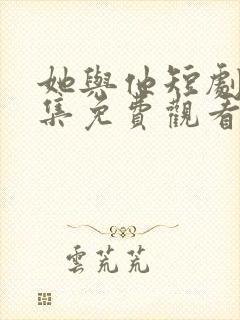 她與他短劇
集免費觀看
雲荒荒